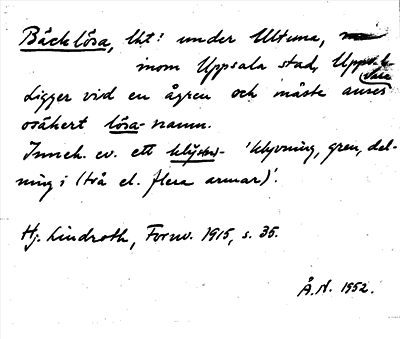 Bäcklösa, lht: under Ultuna,
inom Uppsala stad, Uppsala-
Vara
Ligger vid en ågren och måste anses
osäkert lösa-namn.
Inneh. ev. ett klyss- 'klyvning, gren, del-
ning i (två el. flera armar)'.
Hj. Lindroth, Fornv. 1915, s. 35.
Å.N. 1952.